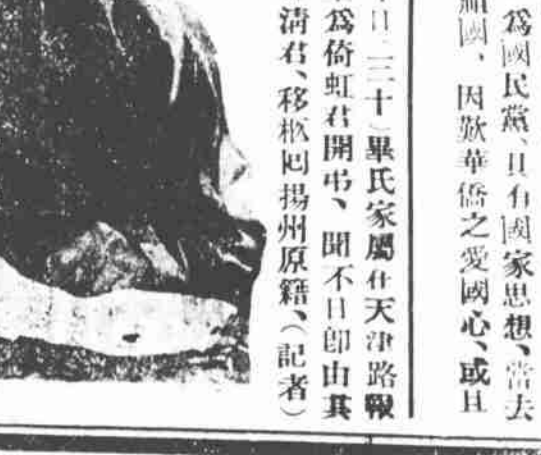 爲國民黨、且有國家思想、當去
祖國、因歎華僑之愛國心、或且
日、三十）畢氏家屬在天津路報
爲倚虹君開弔、聞不日卽由其
淸君、移柩回揚州原籍、（記者）